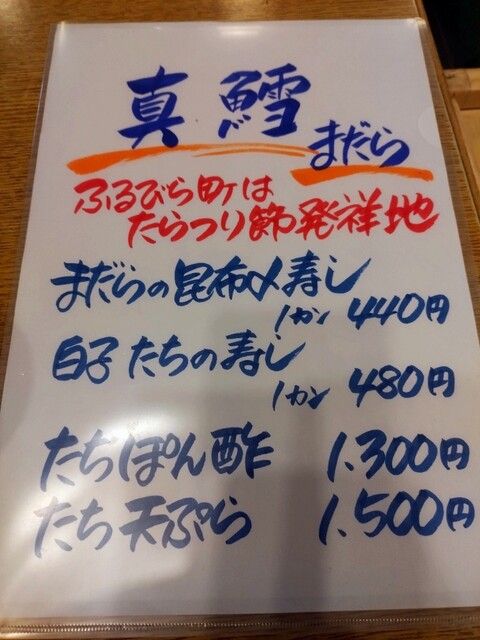 真鱈
まだら
ふるびら町は
たらつり節発祥地
まだらの昆布〆寿し
1カン 440円
白子たちの寿し
1カン 480円
たちぽん酢 1.300円
たち天ぷら 1.500円